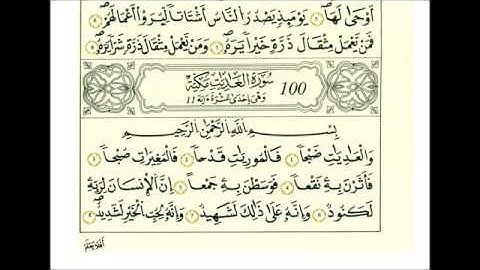 أَوْحٰى لَهَا ۝ يَوْمَئِذٍ يَصْدُرُ النَّاسُ اَشْتَاتًا لِيُرَوْا اَعْمَالَهُمْ ۝
فَمَنْ يَعْمَلْ مِثْقَالَ ذَرَّةٍ خَيْرًا يَرَهُ ۝ وَمَنْ يَعْمَلْ مِثْقَالَ ذَرَّةٍ شَرًّا يَرَهُ ۝
سُورَةُ الْعٰدِيٰتِ مَكِّيَّةٌ
100
وَهِيَ اِحْدٰى عَشْرَةَ اٰيَة 11
بِسْمِ اللهِ الرَّحْمٰنِ الرَّحِيْمِ
وَالْعٰدِيَاتِ ضَبْحًا ۝ فَالْمُوْرِيَاتِ قَدْحًا ۝ فَالْمُغِيْرَاتِ صُبْحًا ۝
فَاَثَرْنَ بِهٖ نَقْعًا ۝ فَوَسَطْنَ بِهٖ جَمْعًا ۝ اِنَّ الْاِنْسَانَ لِرَبِّهٖ
لَكَنُوْدٌ ۝ وَاِنَّهٗ عَلٰى ذٰلِكَ لَشَهِيْدٌ ۝ وَاِنَّهٗ لِحُبِّ الْخَيْرِ لَشَدِيْدٌ ۝
اَفَلَا يَعْلَمُ